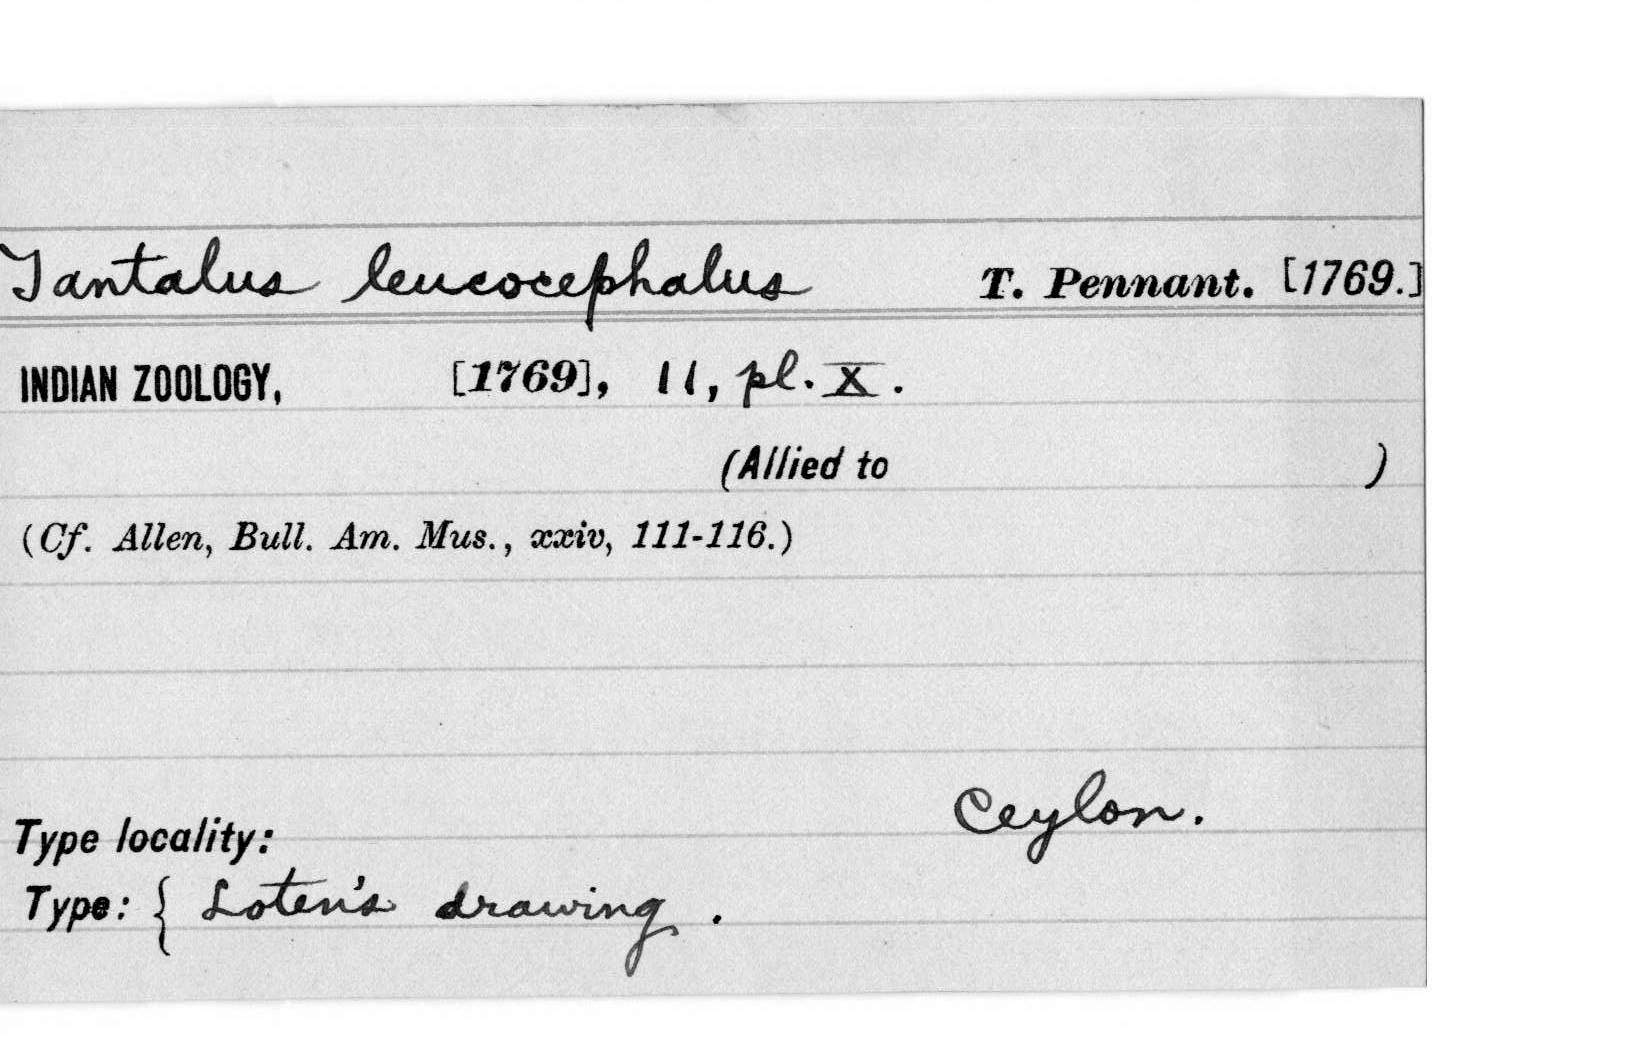 Tantalus leucocephalus T. Pennant. [1769.]
INDIAN ZOOLOGY, [1769], 11, pl. X.
(Allied to )
(Cf. Allen, Bull. Am. Mus., xxiv, 111-116.)
Ceylon.
Type locality:
Type: { Loten's drawing.